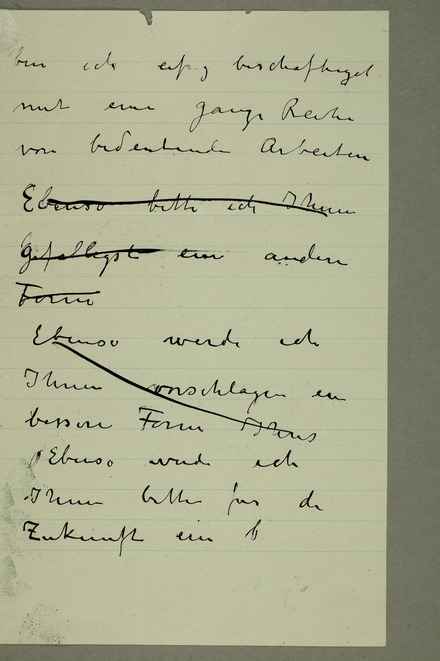 bin ich eifrig beschäftigt
mit eine ganze Reihe
von bedeutende Arbeiten
Ebenso bitte ich Ihnen
Gefälligst eine andere
Form
Ebenso werde ich
Ihnen vorschlagen ein
bessere Form Ihres
Ebenso werde ich
Ihnen bitte für die
Zukunft ein b